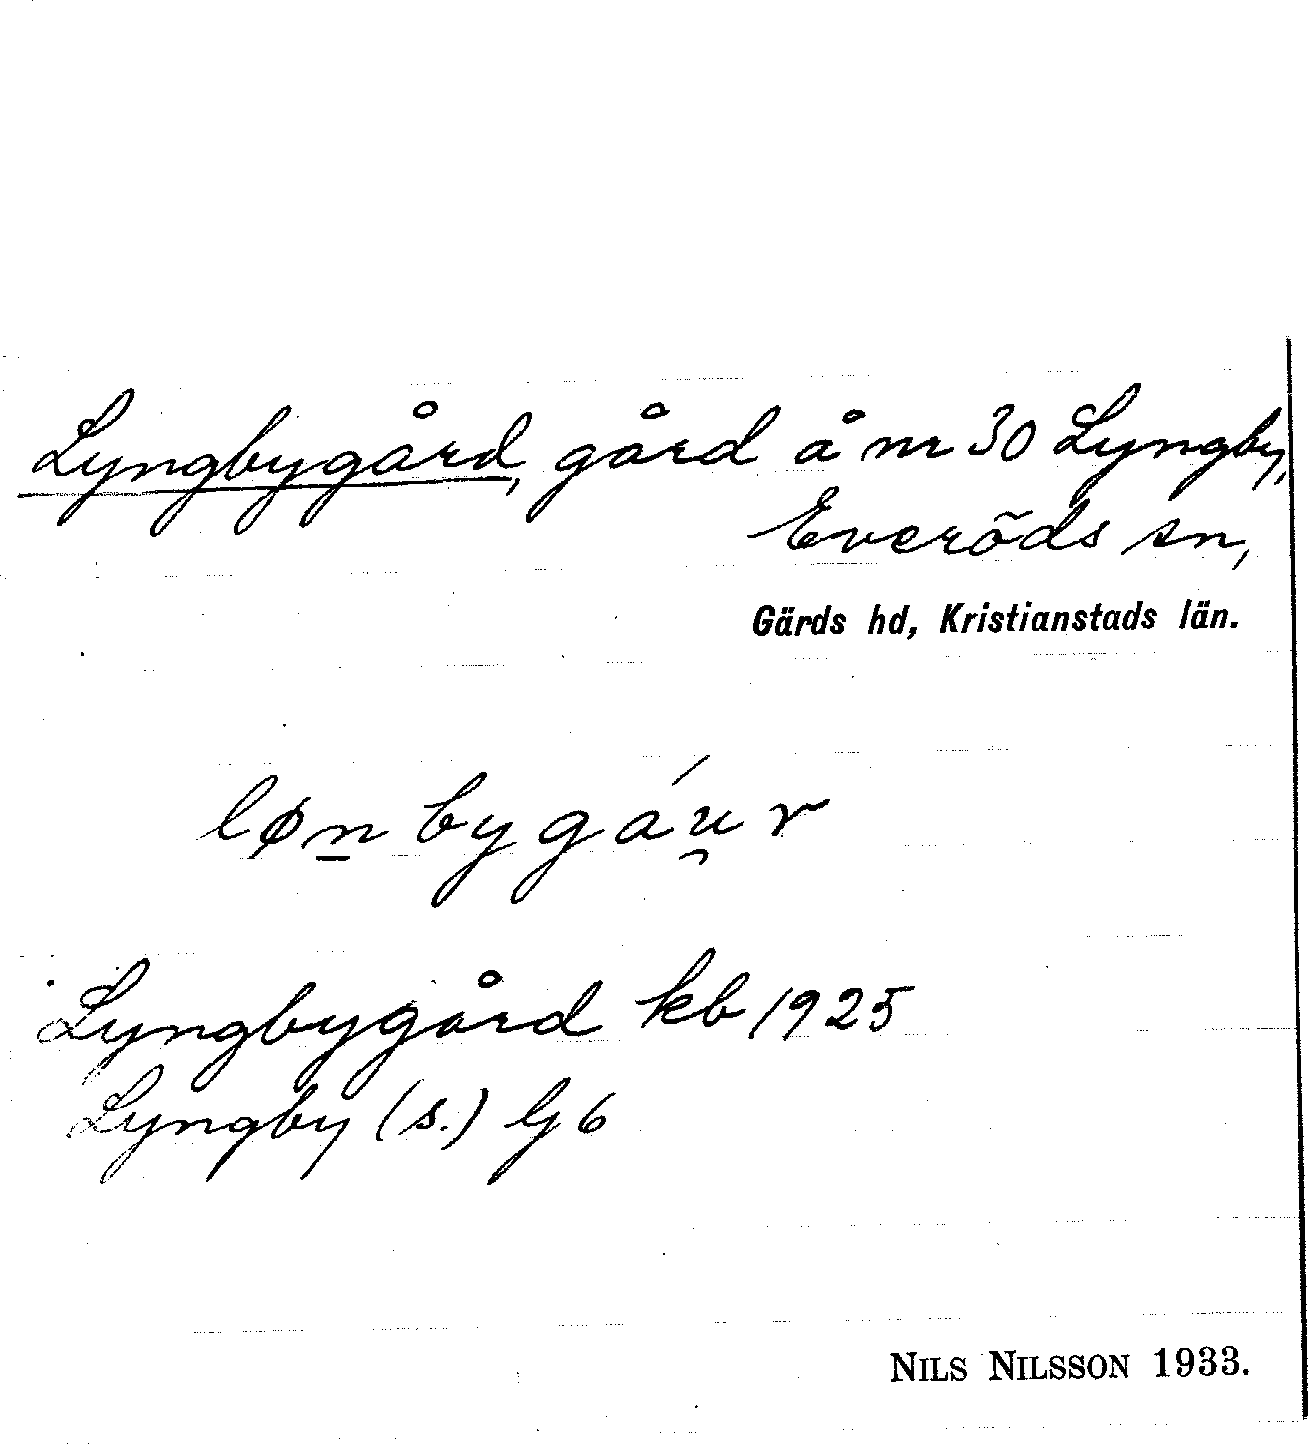 Lyngbygård, gård å nr 30 Lyngby,
Everöds sn,
Gärds hd, Kristianstads län.
løn̲bygáu̯r
Lyngbygård kb 1925
Lyngby (s.) G 6
NILS NILSSON 1933.